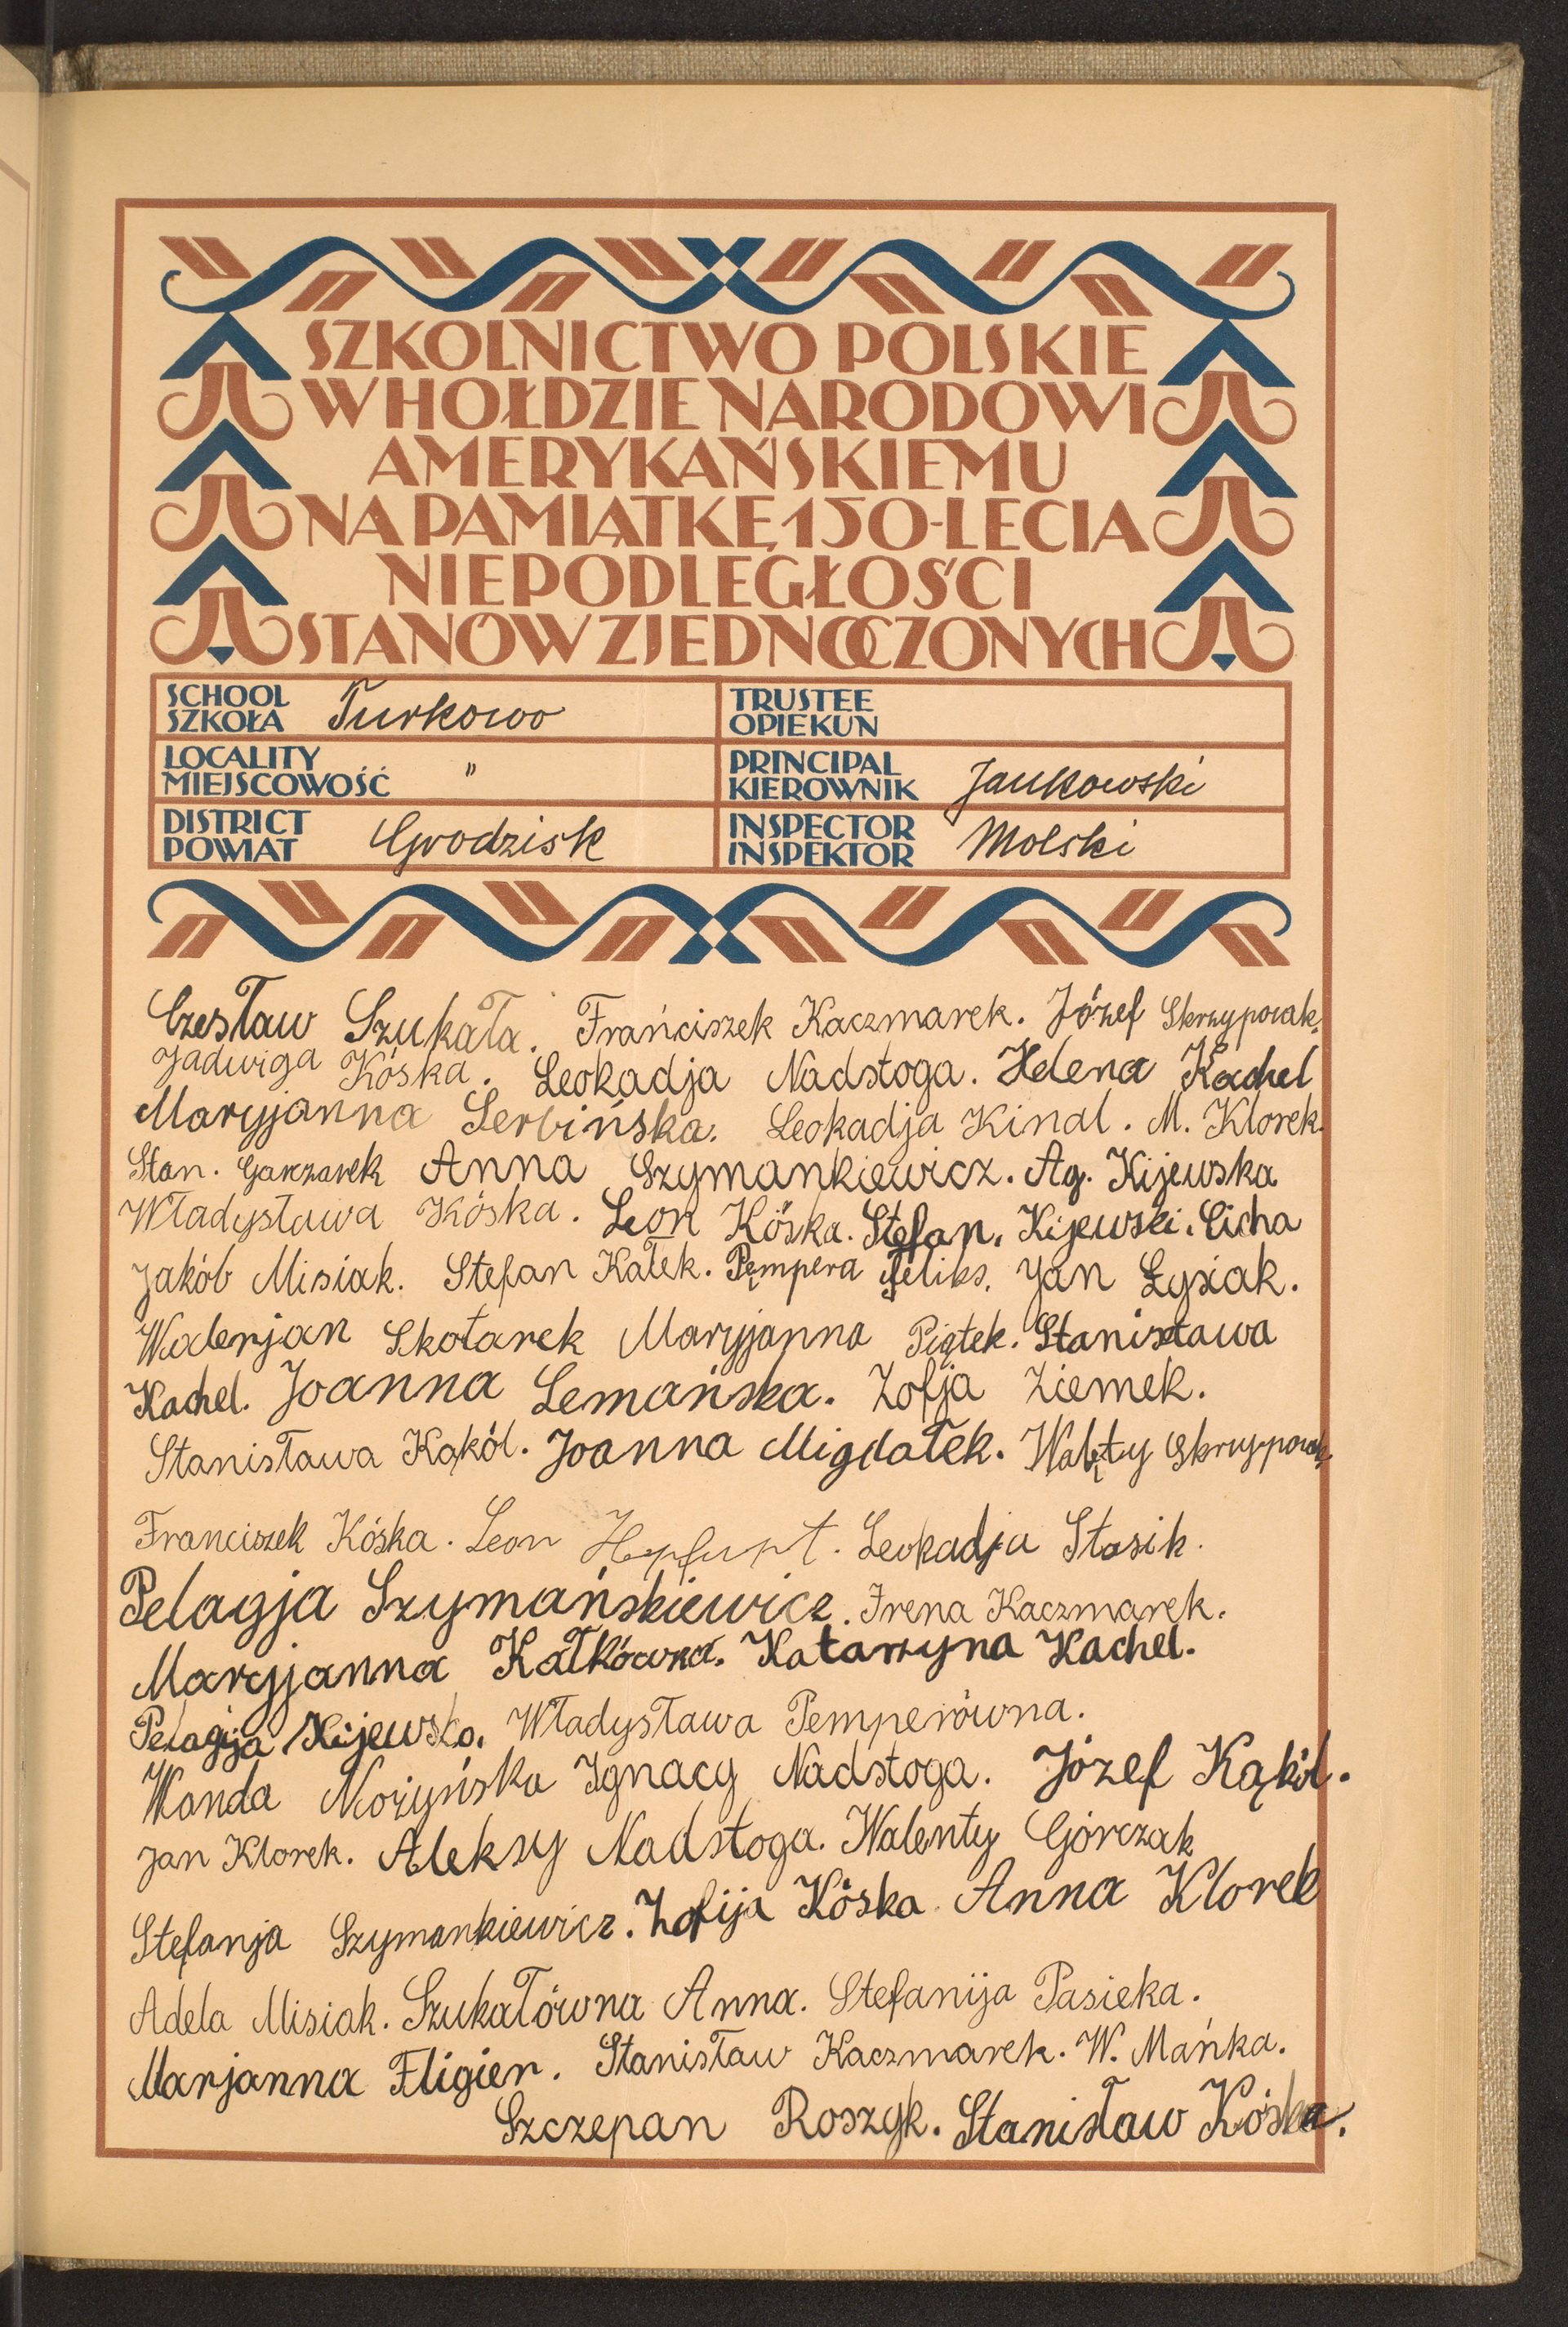 SZKOLNICTWO POLSKIE
W HOŁDZIE NARODOWI
AMERYKAŃSKIEMU
NA PAMIĄTKĘ 150-LECIA
NIEPODLEGŁOŚCI
STANÓW ZJEDNOCZONYCH
SCHOOL
SZKOŁA Turkowo
TRUSTEE
OPIEKUN
LOCALITY
MIEJSCOWOŚĆ "
PRINCIPAL
KIEROWNIK Jankowski
DISTRICT
POWIAT Grodzisk
INSPECTOR
INSPEKTOR Molski
Czesław Szukała. Frańciszek Kaczmarek. Józef Skrzypczak.
Jadwiga Kóska. Leokadja Nadstoga. Helena Kachel
Maryjanna Serbińska. Leokadja Kinal. M. Klorek.
Stan. Garczarek Anna Szymankiewicz. Ag. Kijewska
Władysława Kóska. Leon Kóska. Stefan. Kijewski. Cicha
Jakób Misiak. Stefan Kałek. Pęmpera Feliks. Jan Łysiak.
Walerjan Skotarek Maryjanna Piątek. Stanisława
Kachel. Joanna Lemańska. Zofja Ziemek.
Stanisława Kąkól. Joanna Migdałek. Walęty
Franciszek Kóska. Leon Leokadja Stasik.
Pelagja Szymańskiewicz. Irena Kaczmarek.
Maryjanna Kałkówna. Katarzyna Kachel.
Pelagija Kijewska. Władysława Pemperówna.
Wanda Nożyńska Ignacy Nadstoga. Józef Kąkól.
Jan Klorek. Aleksy Nadstoga. Walenty Górczak
Stefanja Szymankiewicz. Zofija Kóska Anna Klorek
Adela Misiak. Szukałówna Anna. Stefanija Pasieka.
Marjanna Fligier. Stanisław Kaczmarek. W. Mańka.
Szczepan Roszyk. Stanisław Kóska.